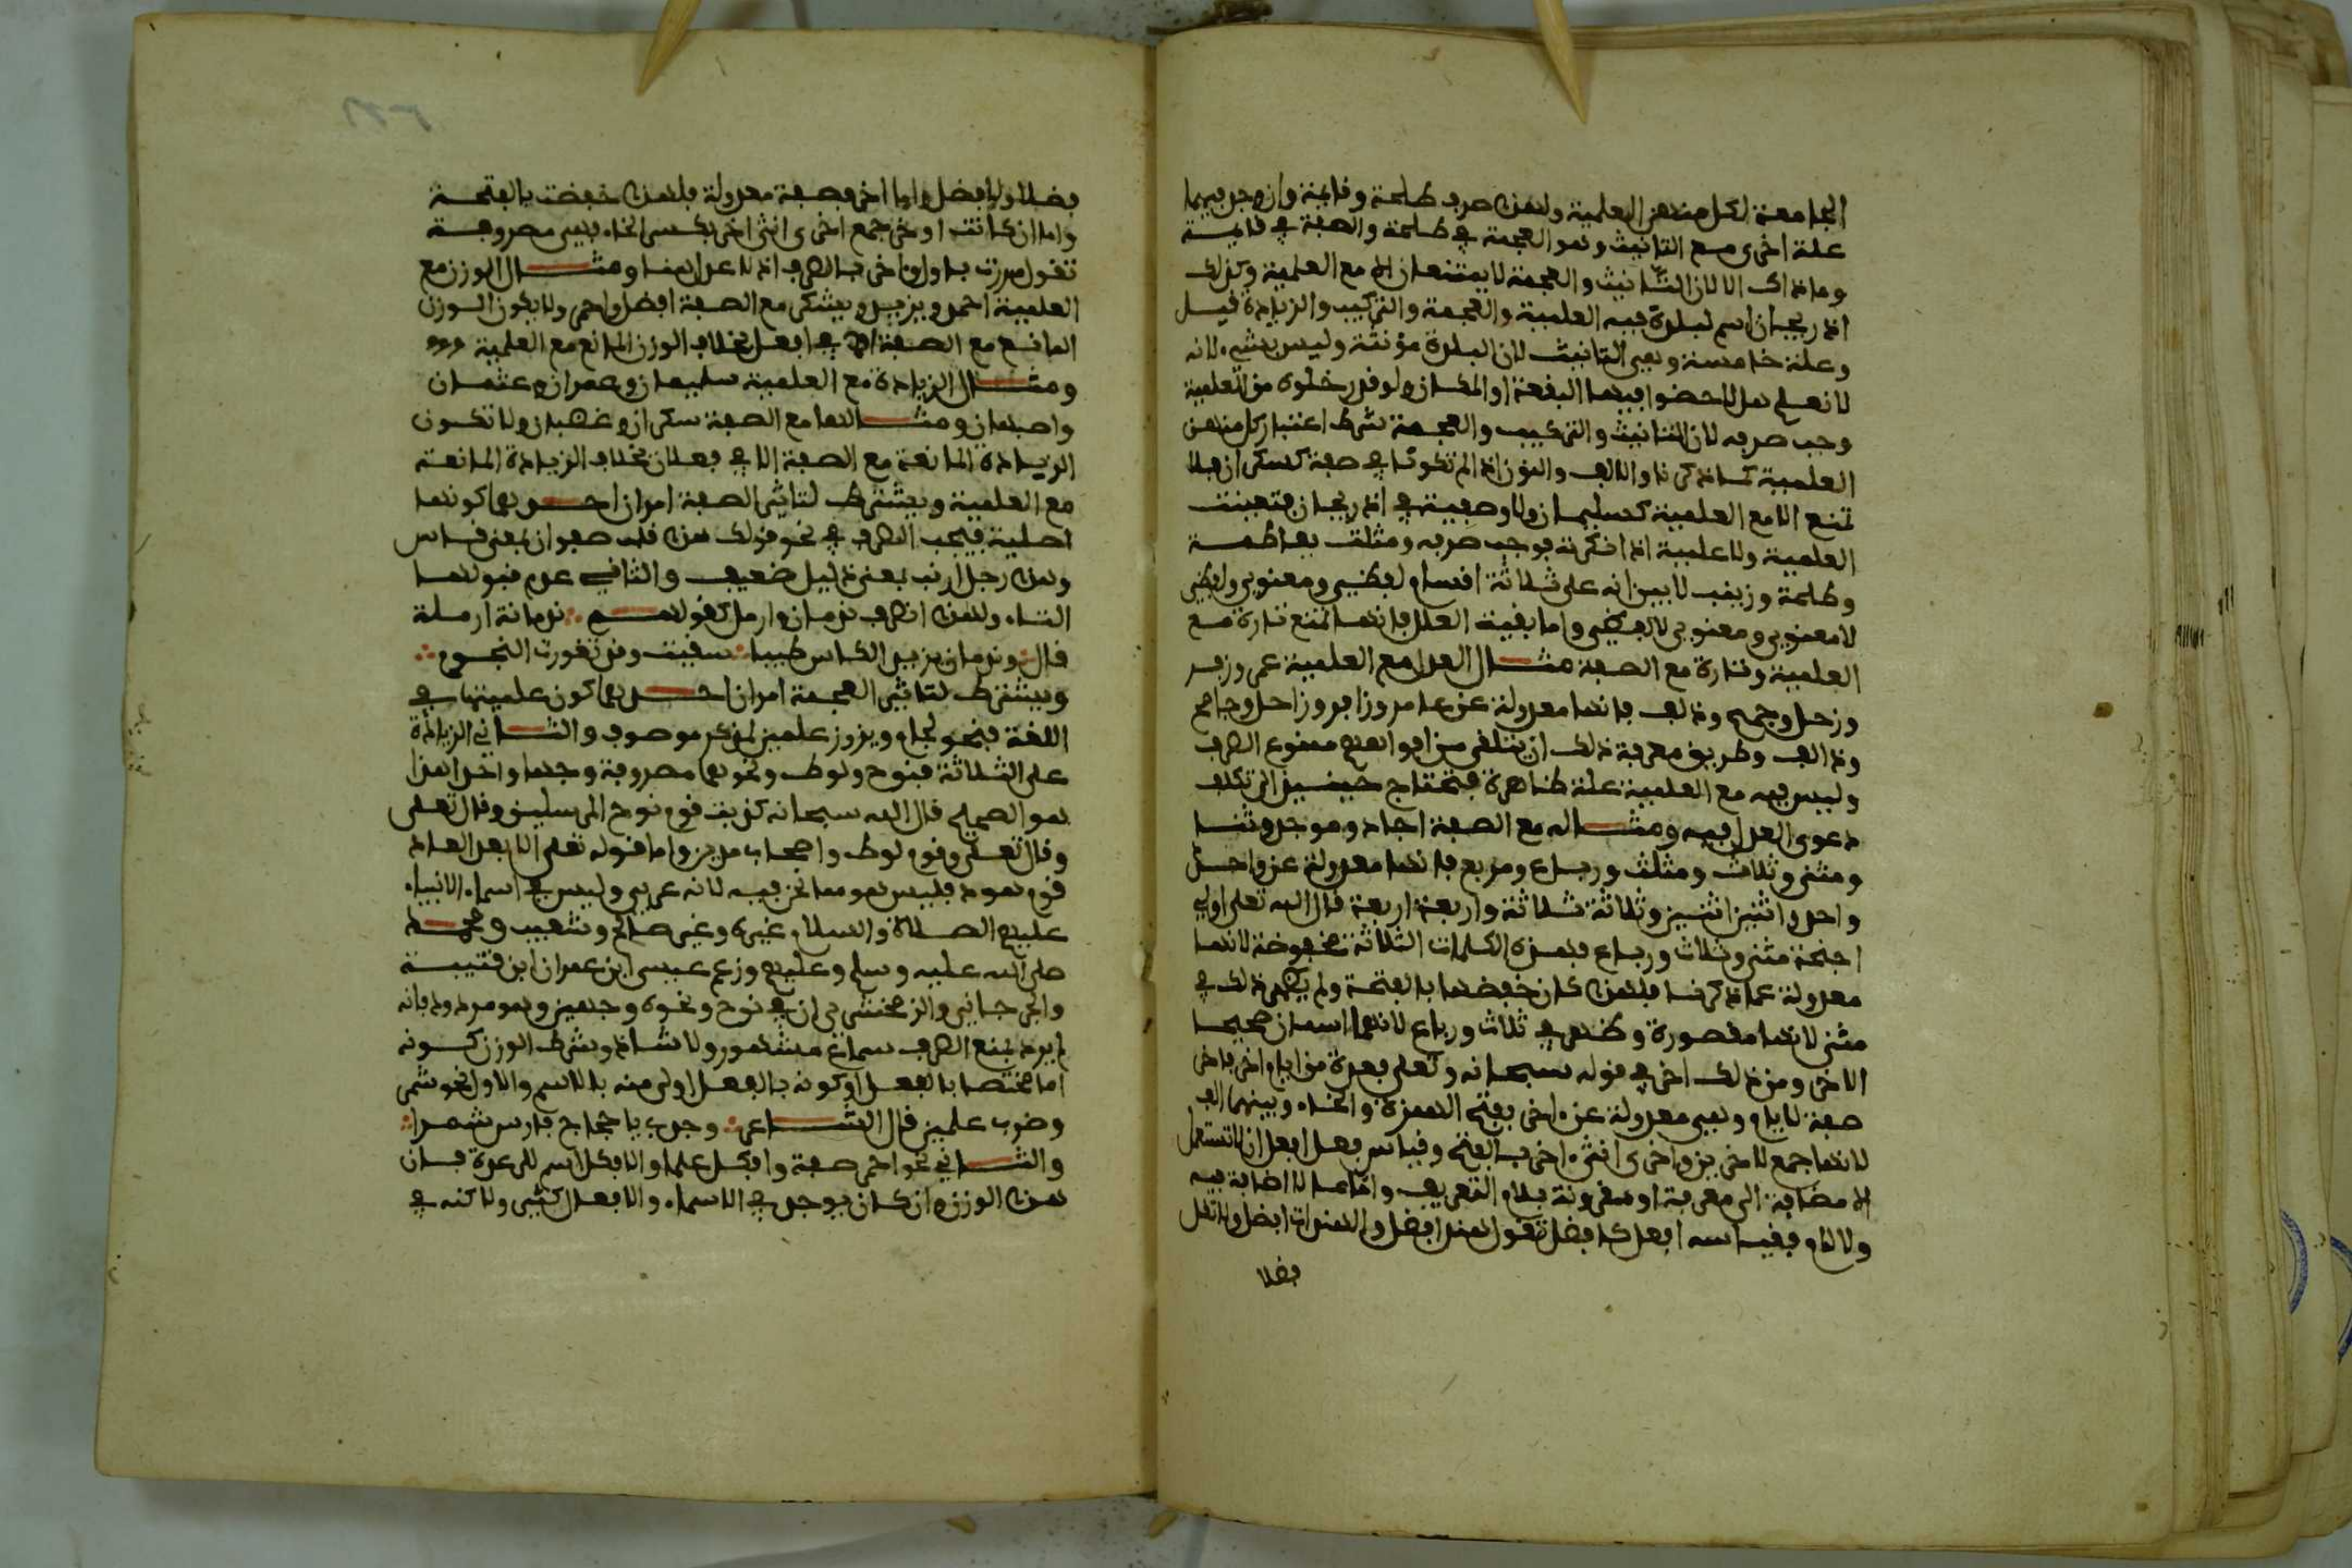 الجامعة لكل منهن العلمية ولهذا صرف طلحة وقايمة وان وجد فيهما
علة اخرى مع التانيث وهو العجمة في طلحة والصفة في قايمة
وما ذاك الا لان التانيث والعجمة لا يمتنعان الا مع العلمية وكذلك
اذربيجان اسم لبلدة فيه العلمية والعجمة والتركيب والزيادة قيل
وعلة خامسة وهي التانيث لان البلدة مؤنثة وليس بشيء لانه
لا نعلم هل لاحضوا فيها البقعة او المكان ولو قدر خلوه من العلمية
وجب صرفه لان التانيث والتركيب والعجمة شرط اعتبار كل منهن
العلمية كما ذكرنا والالف والنون اذا لم تكونا في صفة كسكران فلا
تمنع الا مع العلمية كسليمان ولا وصفية في اذربيجان فتعينت
العلمية ولا علمية اذا نكرته فوجب صرفه ومثلت بفاطمة
وطلحة وزينب لابين انه على ثلاثة اقسام لفظي ومعنوي ولفظي
لا معنوي ومعنوي لا لفظي واما بقية العلل فانها تمنع تارة مع
العلمية وتارة مع الصفة مثال العدل مع العلمية عمر وزفر
وزحل وجمح ودلف فانها معدولة عن عامر وزافر وزاحل وجامح
ودالف وطريق معرفة ذلك ان يتلقى من افواههم ممنوع الصرف
وليس فيه مع العلمية علة ظاهرة فتحتاج حينئذ الى تكلف
دعوى العدل فيه ومثاله مع الصفة احاد وموحد وثنا
ومثنى وثلاث ومثلث ورباع ومربع فانها معدولة عن واحد
واحد واثنين اثنين وثلاثة ثلاثة واربعة اربعة قال الله تعلى اولي
اجنحة مثنى وثلاث ورباع فهذه الكلمات الثلاثة مخفوضة لانها
معدولة عما ذكرنا فلهذا كان خفضها بالفتحة ولم يظهر ذلك في
مثنى لانها مقصورة وظهر في ثلاث ورباع لانهما اسمان صحيحا
الاخر ومن ذلك اخر في قوله سبحانه وتعلى فعدة من ايام اخر فاخر
صفة لايام وهي معدولة عن اخر بفتح الهمزة والخاء وبينهما الف
لانها جمع لاخرى واخرى انثى اخر بالفتح وقياس فعل افعل ان لا تستعمل
الا مضافة الى معرفة او مقرونة بلام التعريف واما ما لا اضافة فيه
ولا لام فقياسه افعل كافضل تقول هند افضل والهندات افضل ولا تقل
فضلا
فضلا ولا فضل واما اخر فصفة معدولة فلهذا خفضت بالفتحة
واما ان كانت اخر جمع اخرى انثى اخر بكسر الخاء فهي مصروفة
تقول مررت باول واخر بالصرف اذ لا عدل هنا ومثال الوزن مع
العلمية احمد ويزيد ويشكر مع الصفة افضل واحمر ولا يكون الوزن
المانع مع الصفة الا في افعل بخلاف الوزن المانع مع العلمية
ومثال الزيادة مع العلمية سليمان وعمران وعثمان
واصبهان ومثالها مع الصفة سكران وغضبان ولا تكون
الزيادة المانعة مع الصفة الا في فعلان بخلاف الزيادة المانعة
مع العلمية ويشترط لتاثير الصفة امران احدهما كونها
اصلية فيجب الصرف في نحو قولك هذا قلب صفوان بمعنى قاس
وهذا رجل ارنب بمعنى ذليل ضعيف والثاني عدم قبولها
التاء ولهذا انصرف ندمان وارمل كقولهم ندمانة ارملة
قال وندمان يزيد الكاس طيبا سقيت وقد تغورت النجوم
ويشترط لتاثير العجمة امران احدهما كون علميتها في
اللغة فنحو لجام وبزوز علمين لمذكر مصروف والثاني الزيادة
على الثلاثة فنوح ولوط ونحوهما مصروفة وجها واحدا هذا
هو الصحيح قال الله سبحانه كذبت قوم نوح المرسلين وقال تعلى
وقال تعلى وقوم لوط واصحاب مدين واما قوله تعلى الا بعدا لعاد
قوم هود فليس هو مما نحن فيه لانه عربي وليس في اسماء الانبياء
عليهم الصلاة والسلام غيره وغير صالح وشعيب ومحمد
صلى الله عليه وسلم وعليهم وزعم عيسى ابن عمر ان ابن قتيبة
والجرجاني والزمخشري ان في نوح ونحوه وجهين وهو مردود فانه
لم يرد بمنع الصرف سماع مشهور ولا شاذ وشرط الوزن كونه
اما مختصا بالفعل او كونه بالفعل اولى منه بالاسم والاول نحو شمر
وضرب علمين قال الشاعر وجدي يا حجاج فارس شمرا
والثاني نحو احمر صفة وافكل علما والافكل اسم للرعدة فان
هذا الوزن وان كان يوجد في الاسماء والافعال كثيرا ولاكنه في